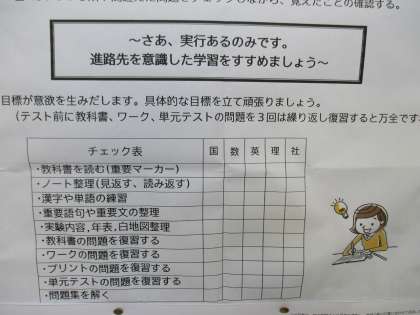 問題をチェックしながら、覚えたことの確認する。
～さあ、実行あるのみです。
進路先を意識した学習をすすめましょう～
目標が意欲を生みだします。具体的な目標を立て頑張りましょう。
（テスト前に教科書、ワーク、単元テストの問題を３回は繰り返し復習すると万全です
チェック表 国 数 英 理 社
・教科書を読む(重要マーカー)
・ノート整理(見返す、読み返す)
・漢字や単語の練習
・重要語句や重要文の整理
・実験内容,年表,白地図整理
・教科書の問題を復習する
・ワークの問題を復習する
・プリントの問題を復習する
・単元テストの問題を復習する
・問題集を解く